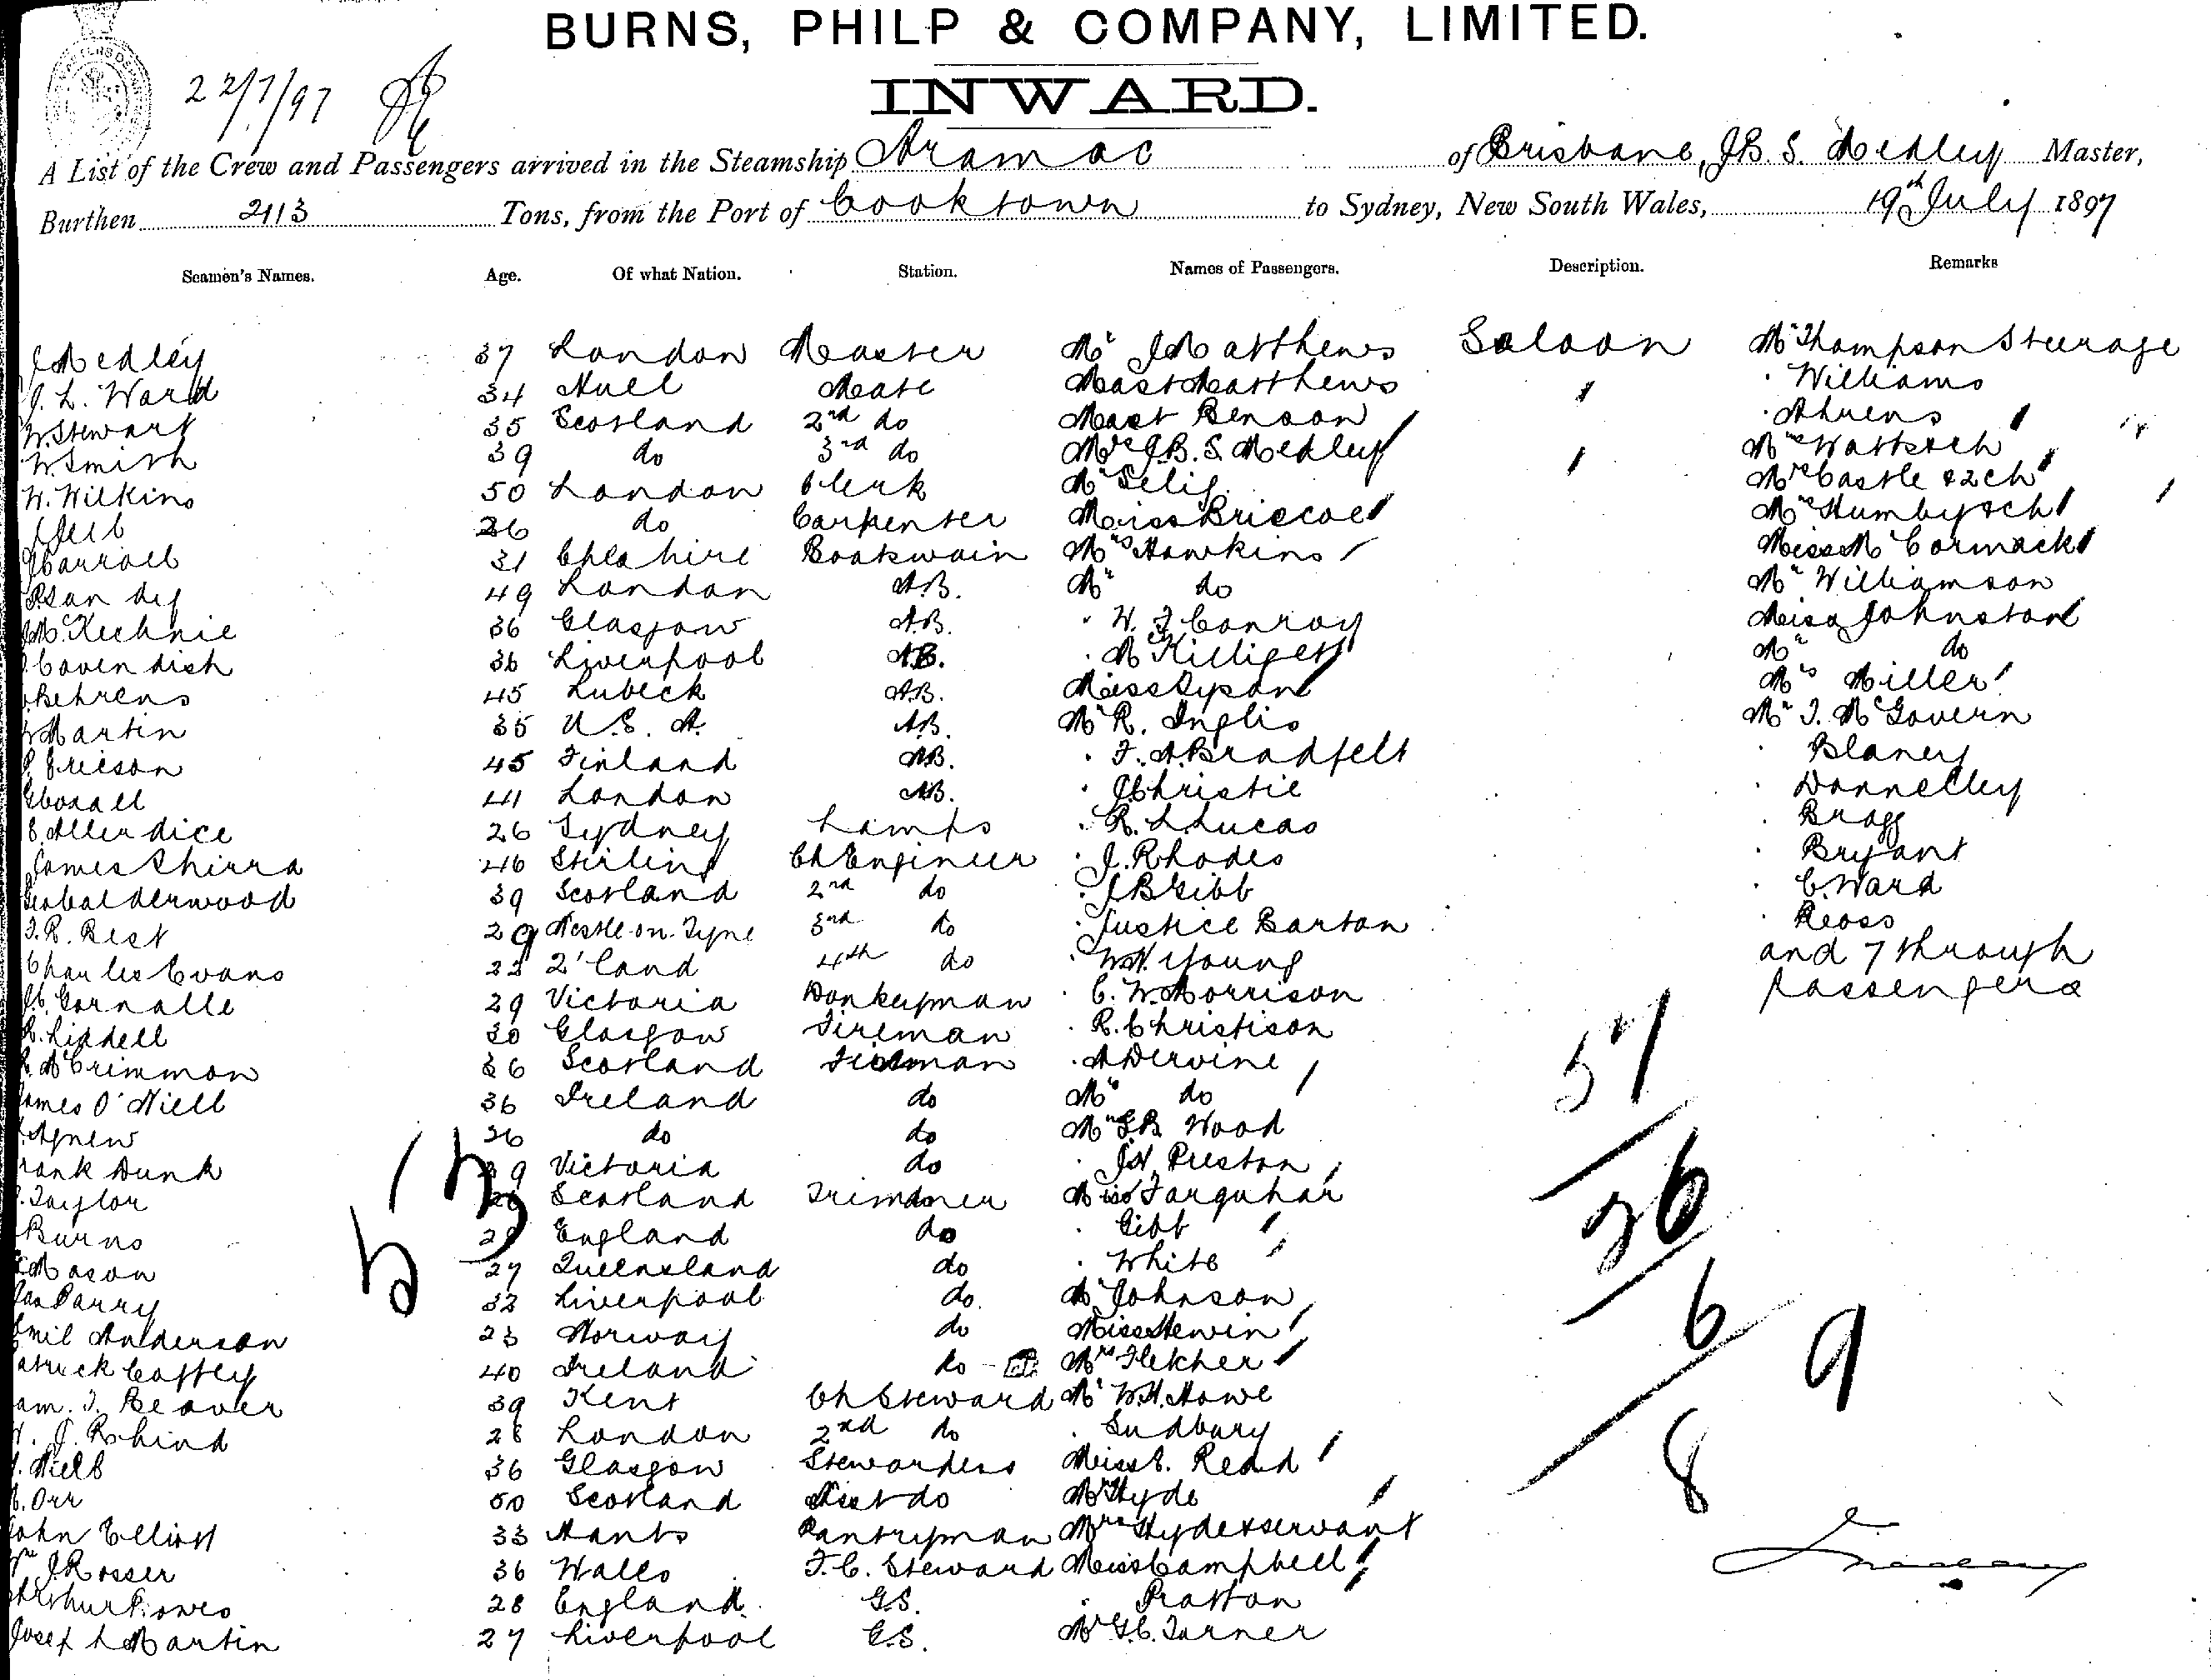 BURNS, PHILP & COMPANY, LIMITED.
22/7/97
INWARD.
A List of the Crew and Passengers arrived in the Steamship Aramac of Brisbane, J.B.S. Medley Master,
Burthen 2113 Tons, from the Port of Cooktown to Sydney, New South Wales, 19th July 1897
Seamen's Names. Age. Of what Nation. Station. Names of Passengers. Description. Remarks
J Medley 37 London Master Mr J Matthews Saloon Mr Thompson Steerage
J. L. Ward 34 Hull Mate Mast Matthews " Williams
W. Stewart 35 Scotland 2nd do Mast Benson " Ahrens
W. Smith 39 do 3rd do Mrs J.B.S. Medley Mrs
W. Wilkins 50 London Clerk Mr Selig Mrs Castle & 2 ch
26 do Carpenter Miss Briscoe Mrs Humby & ch
J Carroll 31 Cheshire Boatswain Mrs Hawkins Miss McCormack
49 London A.B. Mr do Mr Williamson
McKechnie 36 Glasgow A.B. " W. J Conroy Miss Johnston
Cavendish 36 Liverpool A.B. " Mr do
Behrens 45 Lubeck A.B. Miss Dyson Mrs Miller
Martin 35 U.S.A. A.B. Mr R. Inglis Mr J. McGovern
Ericson 45 Finland A.B. " F. A. Bradfelt " Blaney
41 London A.B. " J Christie " Donnelley
Allerdice 26 Sydney Lamps " R. L. Lucas " Bragg
James Shirra 46 Stirling Ch Engineer " J. Rhodes " Bryant
Geo Calderwood 39 Scotland 2nd do " J B Gibb " C. Ward
J. R. Rest 29 Ncstle-on-Tyne 3rd do " Justice Barton " Reoss
Charles Evans 22 Z'land 4th do " W.H. Young and 7 through
Gornalle 29 Victoria Donkeyman " C. W. Morrison passengers
R. Liddell 30 Glasgow Fireman " R. Christison
McCrimmon 26 Scotland Fireman " A Dervine
James O'Niell 36 Ireland do Mrs do
Agnew 26 do do Mr G.B. Wood
Frank Dunk 29 Victoria do " J.H. Preston
Taylor 26 Scotland Trimmer Miss Farquhar
Burns 29 England do " Gibb
Mason 27 Queensland do " White
Jas Parry 32 Liverpool do Mr Johnson
Emil Anderson 23 Norway do Miss Hewin
Patrick Caffley 40 Ireland do Mrs Fletcher
Sam. J. Beaver 39 Kent Ch Steward Mr W.H. Howe
J. Rhind 28 London 2nd do " Sudbury
Niell 36 Glasgow Stewardess Miss E. Read
Orr 50 Scotland Asst do Mr Hyde
John Elliott 33 Hants Pantryman Mrs Hyde & servant
Wm J Rosser 36 Wales F.C. Steward Miss Campbell
Arthur Jones 28 England G.S. " Pratton
Joseph Martin 27 Liverpool G.S. Mr G.C. Turner
53
57
26
6
8
9